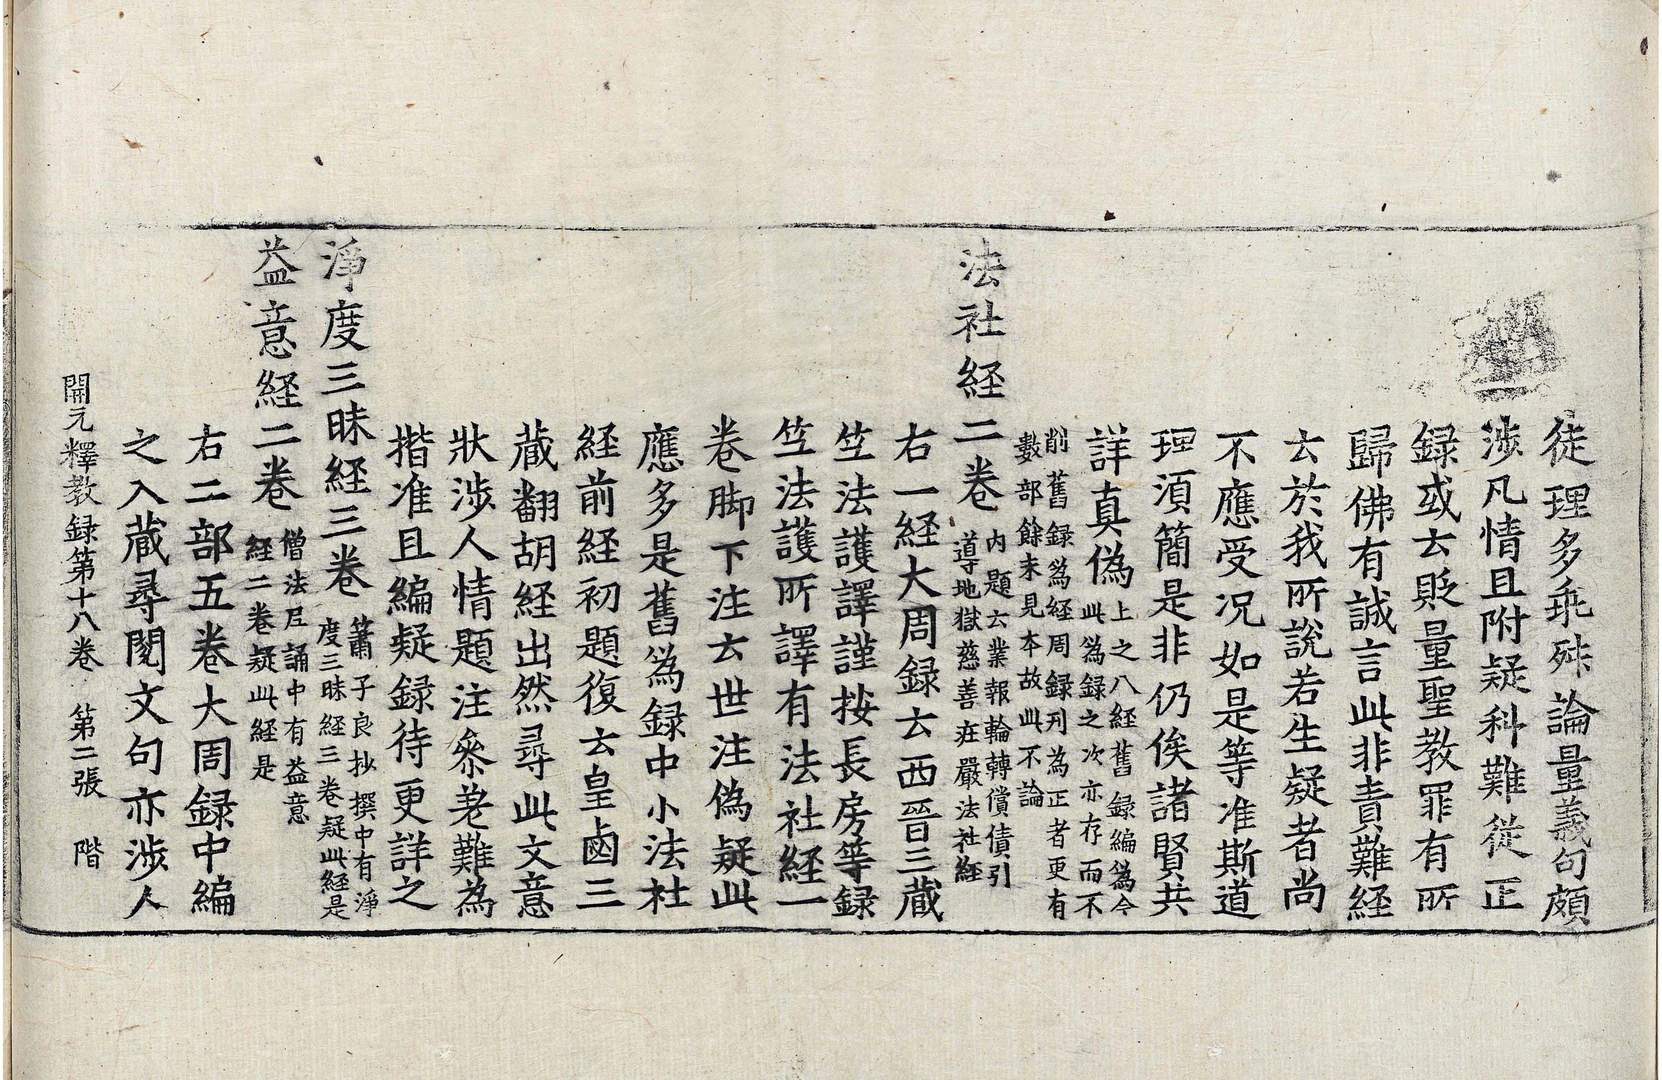 從理多乖殊論量義句頗
涉凡情且附疑科難從正
録或云貶量聖教罪有所
歸佛有誠言此非責難經
云於我所說若生疑者尚
不應受況如是等准斯道
理湏簡是非仍俟諸賢共
詳真偽上之八経舊録編爲今
此爲録之次亦存而不
削舊録爲経周録刋為正者更有
數部餘未見本故此不論
法社経二卷内題云業報輪轉償債引
導地獄慈善莊嚴法社経
右一経大周録云西晉三藏
竺法護譯謹按長房等録
竺法護所譯有法社経一
卷脚下注云世注偽疑此
應多是舊爲録中小法社
経前経初題復云皇鹵三
藏翻胡経出然尋此文意
狀涉人情題注叅差難為
揩准且編疑録待更詳之
淨度三昧経三卷簫子良抄撰中有淨
度三昧経三卷疑此経是
益意経二卷僧法尼誦中有益意
経二卷疑此経是
右二部五卷大周録中編
之入藏尋閱文句亦涉人
開元釋教録第十八卷 第二張 階